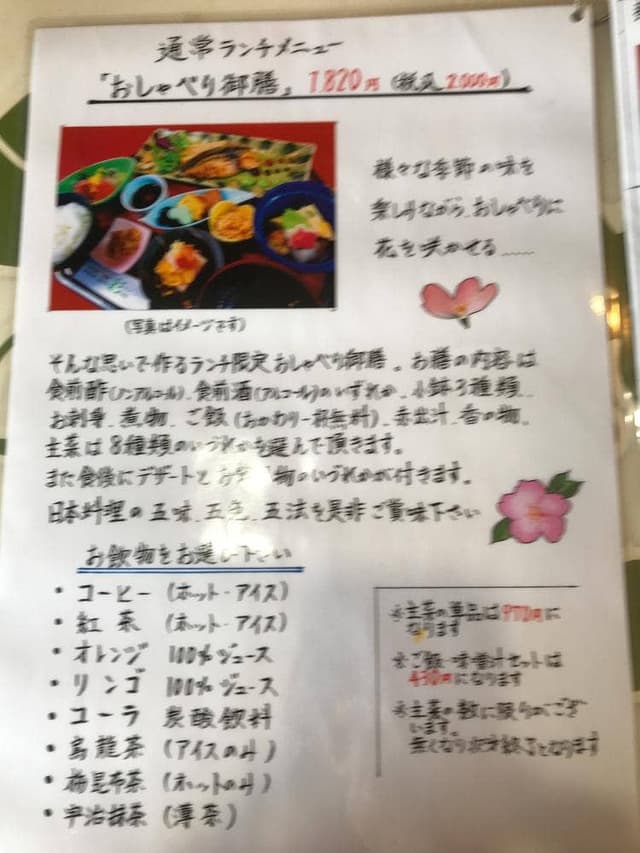 通常ランチメニュー
「おしゃべり御膳」 1,820円 (税込 2,000円)
様々な季節の味を
楽しみながら、おしゃべりに
花を咲かせる……
(写真はイメージです)
そんな思いで作るランチ限定おしゃべり御膳。お膳の内容は
食前酢(ノンアルコール)、食前酒(アルコール)のいずれか、小鉢3種類、
お刺身、煮物、ご飯(おかわり一杯無料)、赤出汁、香の物、
主菜は8種類のいづれかを選んで頂きます。
また食後にデザートとお飲み物のいづれかが付きます。
日本料理の五味、五色、五法を是非ご賞味下さい
お飲物をお選び下さい
・コーヒー (ホット・アイス)
・紅茶 (ホット・アイス)
・オレンジ 100%ジュース
・リンゴ 100%ジュース
・コーラ 炭酸飲料
・烏龍茶 (アイスのみ)
・梅昆布茶 (ホットのみ)
・宇治抹茶 (薄茶)
※主菜の単品は970円に
なります
※ご飯・味噌汁セットは
430円になります
※主菜の数に限りがござ
います。
無くなり次第終了となります